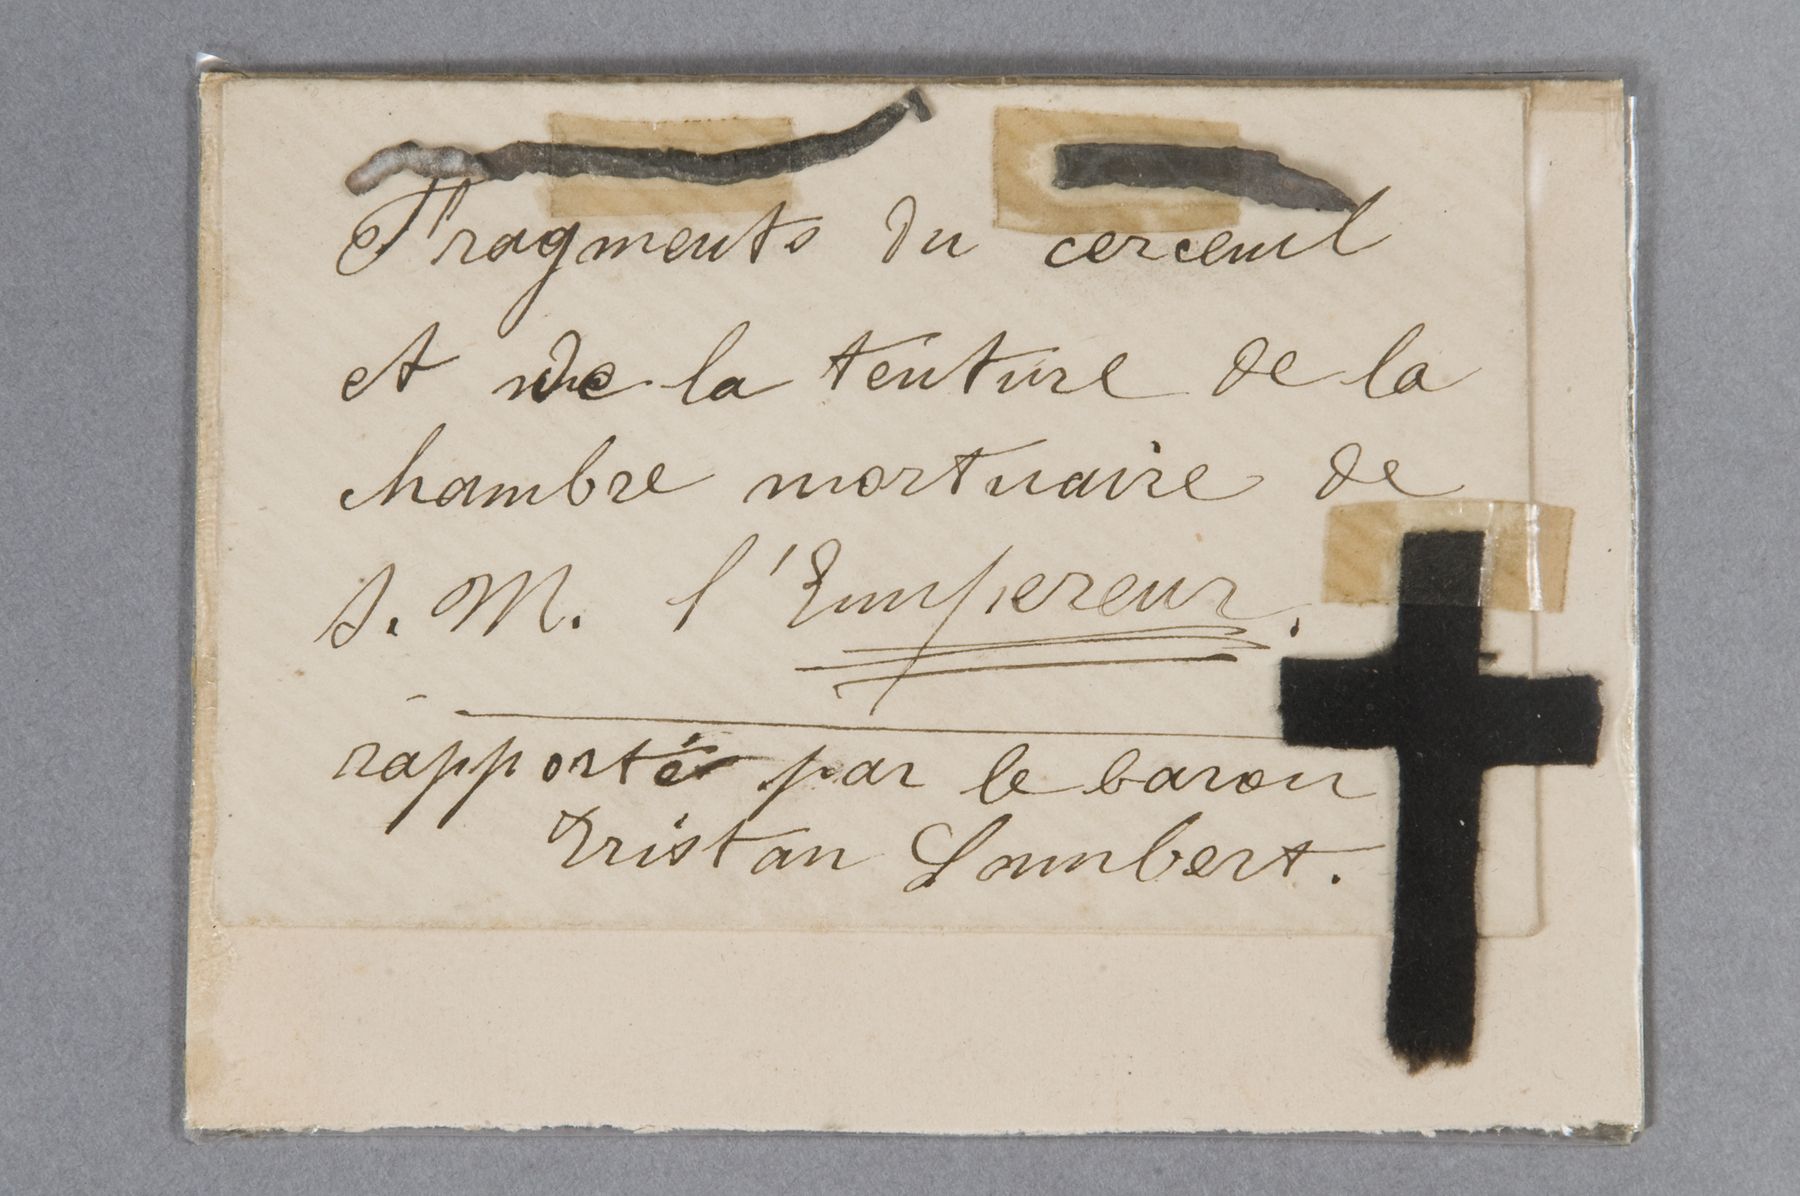 Fragments du cerceuil
et de la tenture de la
chambre mortuaire de
S. M. l'Empereur.
rapporté par le baron
Tristan Lambert.